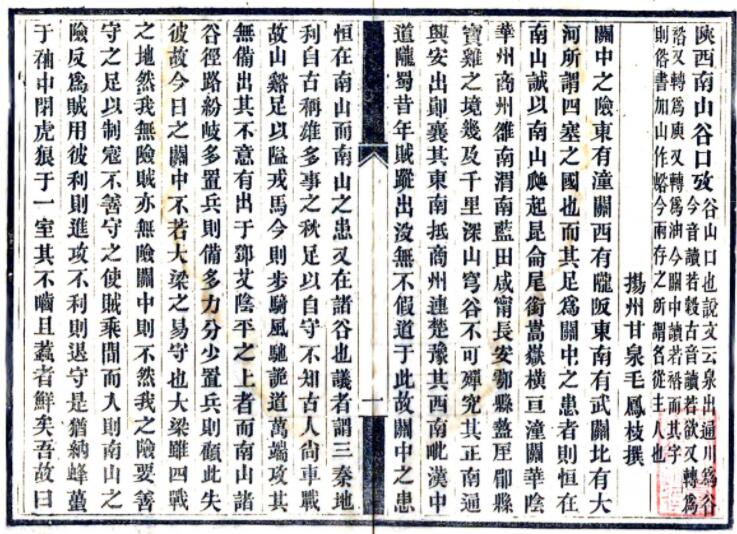 陝西南山谷口攷
谷山口也說文云泉出通川爲谷
今音讀若穀古音讀若欲又轉爲
又轉爲庾又轉爲油今關中讀若裕而其字
則俗書加山作峪今兩存之所謂名從主人也
揚州甘泉毛鳳枝撰
關中之險東有潼關西有隴阪東南有武關北有大
河所謂四塞之國也而其足爲關中之患者則恒在
南山誠以南山脈起昆侖尾銜嵩嶽橫亘潼關華陰
華州商州雒南渭南藍田咸甯長安鄠縣盩厔郿縣
寶雞之境幾及千里深山穹谷不可殫究其正南通
興安出鄖襄其東南抵商州連楚豫其西南毗漢中
道隴蜀昔年賊蹤出沒無不假道于此故關中之患
一
恒在南山而南山之患又在諸谷也議者謂三秦地
利自古稱雄多事之秋足以自守不知古人尙車戰
故山谿足以隘戎馬今則步騎風馳詭道萬端攻其
無備出其不意有出于鄧艾陰平之上者而南山諸
谷徑路紛岐多置兵則備多力分少置兵則顧此失
彼故今日之關中不若大梁之易守也大梁雖四戰
之地然我無險賊亦無險關中則不然我之險要善
守之足以制寇不善守之使賊乘閒而入則南山之
險反爲賊用彼利則進攻不利則退守是猶納蜂蠆
于袖中閉虎狼于一室其不嚙且蠚者鮮矣吾故曰